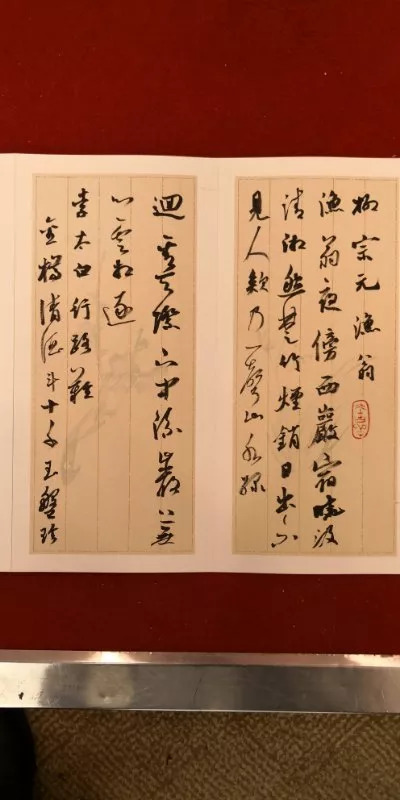 柳宗元漁翁
漁翁夜傍西巖宿曉汲
清湘然楚竹煙銷日出不
見人欸乃一聲山水綠
迴看天際下中流巖上無
心雲相逐
李太白行路難
金樽清酒斗十千玉盤珍